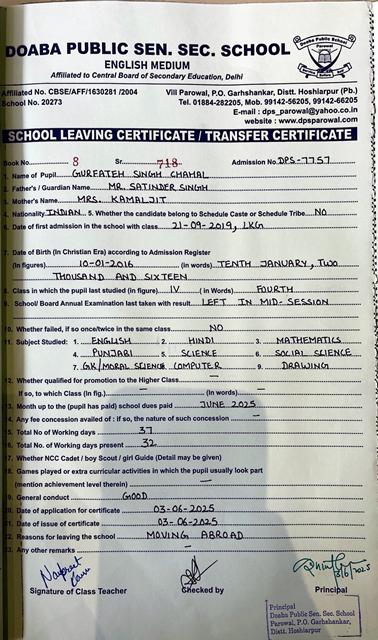 Doaba Public School
Parowal
DOABA PUBLIC SEN. SEC. SCHOOL
ENGLISH MEDIUM
Affiliated to Central Board of Secondary Education, Delhi
Affiliated No. CBSE/AFF/1630281 /2004
School No. 20273
Vill Parowal, P.O. Garhshankar, Distt. Hoshiarpur (Pb.)
Tel. 01884-282205, Mob. 99142-56205, 99142-66205
E-mail : dps_parowal@yahoo.co.in
website : www.dpsparowal.com
SCHOOL LEAVING CERTIFICATE / TRANSFER CERTIFICATE
Book No. 8 Sr. 718 Admission No. DPS-7757
1. Name of Pupil GURFATEH SINGH CHAHAL
2. Father's / Guardian Name MR. SATINDER SINGH
3. Mother's Name MRS. KAMALJIT
4. Nationality INDIAN 5. Whether the candidate belong to Schedule Caste or Schedule Tribe NO
6. Date of first admission in the school with class 21-09-2019, LKG
7. Date of Birth (In Christian Era) according to Admission Register
(in figures) 10-01-2016 (in words) TENTH JANUARY, TWO
THOUSAND AND SIXTEEN
8. Class in which the pupil last studied (in figure) IV (in Words) FOURTH
9. School/ Board Annual Examination last taken with result LEFT IN MID-SESSION
10. Whether failed, if so once/twice in the same class NO
11. Subject Studied : 1. ENGLISH 2. HINDI 3. MATHEMATICS
4. PUNJABI 5. SCIENCE 6. SOCIAL SCIENCE
7. GK/MORAL SCIENCE COMPUTER 9. DRAWING
12. Whether qualified for promotion to the Higher Class —
If so, to which Class (in fig.) — (in Words) —
13. Month up to the (pupil has paid) school dues paid JUNE 2025
14. Any fee concession availed : if so, the nature of such concession —
15. Total No of Working days 37
16. Total No. of Working days present 32
17. Whether NCC Cadet / boy Scout / girl Guide (Detail may be given)
18. Games played or extra curricular activities in which the pupil usually look part
(mention achievement level therein) —
19. General conduct GOOD
20. Date of application for certificate 03-06-2025
21. Date of issue of certificate 03-06-2025
22. Reasons for leaving the school MOVING ABROAD
23. Any other remarks —
Navpreet Kaur
3/6/2025
Signature of Class Teacher Checked by Principal
Principal
Doaba Public Sen. Sec. School
Parowal, P.O. Garhshankar,
Distt. Hoshiarpur